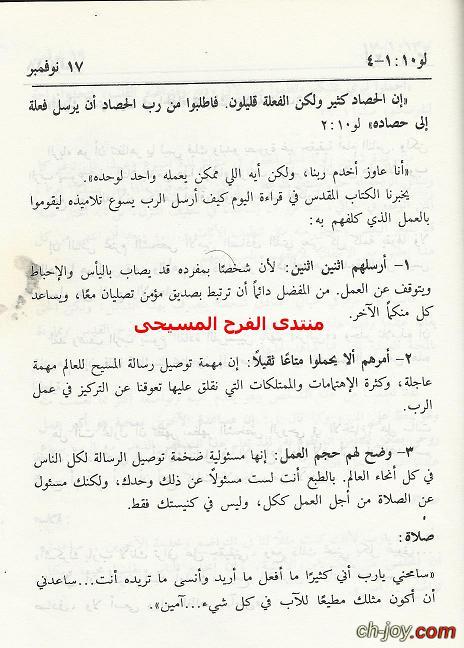 لو١٠:١-٤
١٧ نوفمبر
«إن الحصاد كثير ولكن الفعلة قليلون. فاطلبوا من رب الحصاد أن يرسل فعلة
إلى حصاده» لو١٠:٢
«أنا عاوز أخدم ربنا، ولكن أيه اللي ممكن يعمله واحد لوحده».
يخبرنا الكتاب المقدس في قراءة اليوم كيف أرسل الرب يسوع تلاميذه ليقوموا
بالعمل الذي كلفهم به:
١- أرسلهم اثنين اثنين: لأن شخصًا بمفرده قد يصاب باليأس والإحباط
ويتوقف عن العمل. من المفضل دائماً أن ترتبط بصديق مؤمن تصليان معًا، ويساعد
كل منكما الآخر.
منتدى الفرح المسيحى
٢- أمرهم ألا يحملوا متاعًا ثقيلاً: إن مهمة توصيل رسالة المسيح للعالم مهمة
عاجلة، وكثرة الإهتمامات والممتلكات التي نقلق عليها تعوقنا عن التركيز في عمل
الرب.
٣- وضح لهم حجم العمل: إنها مسئولية ضخمة توصيل الرسالة لكل الناس
في كل أنحاء العالم. بالطبع أنت لست مسئولاً عن ذلك وحدك، ولكنك مسئول
عن الصلاة من أجل العمل ككل، وليس في كنيستك فقط.
صلاة:
«سامحني يارب أني كثيرًا ما أفعل ما أريد وأنسى ما تريده أنت...ساعدني
أن أكون مثلك مطيعًا للآب في كل شيء...آمين».
ch-joy.com